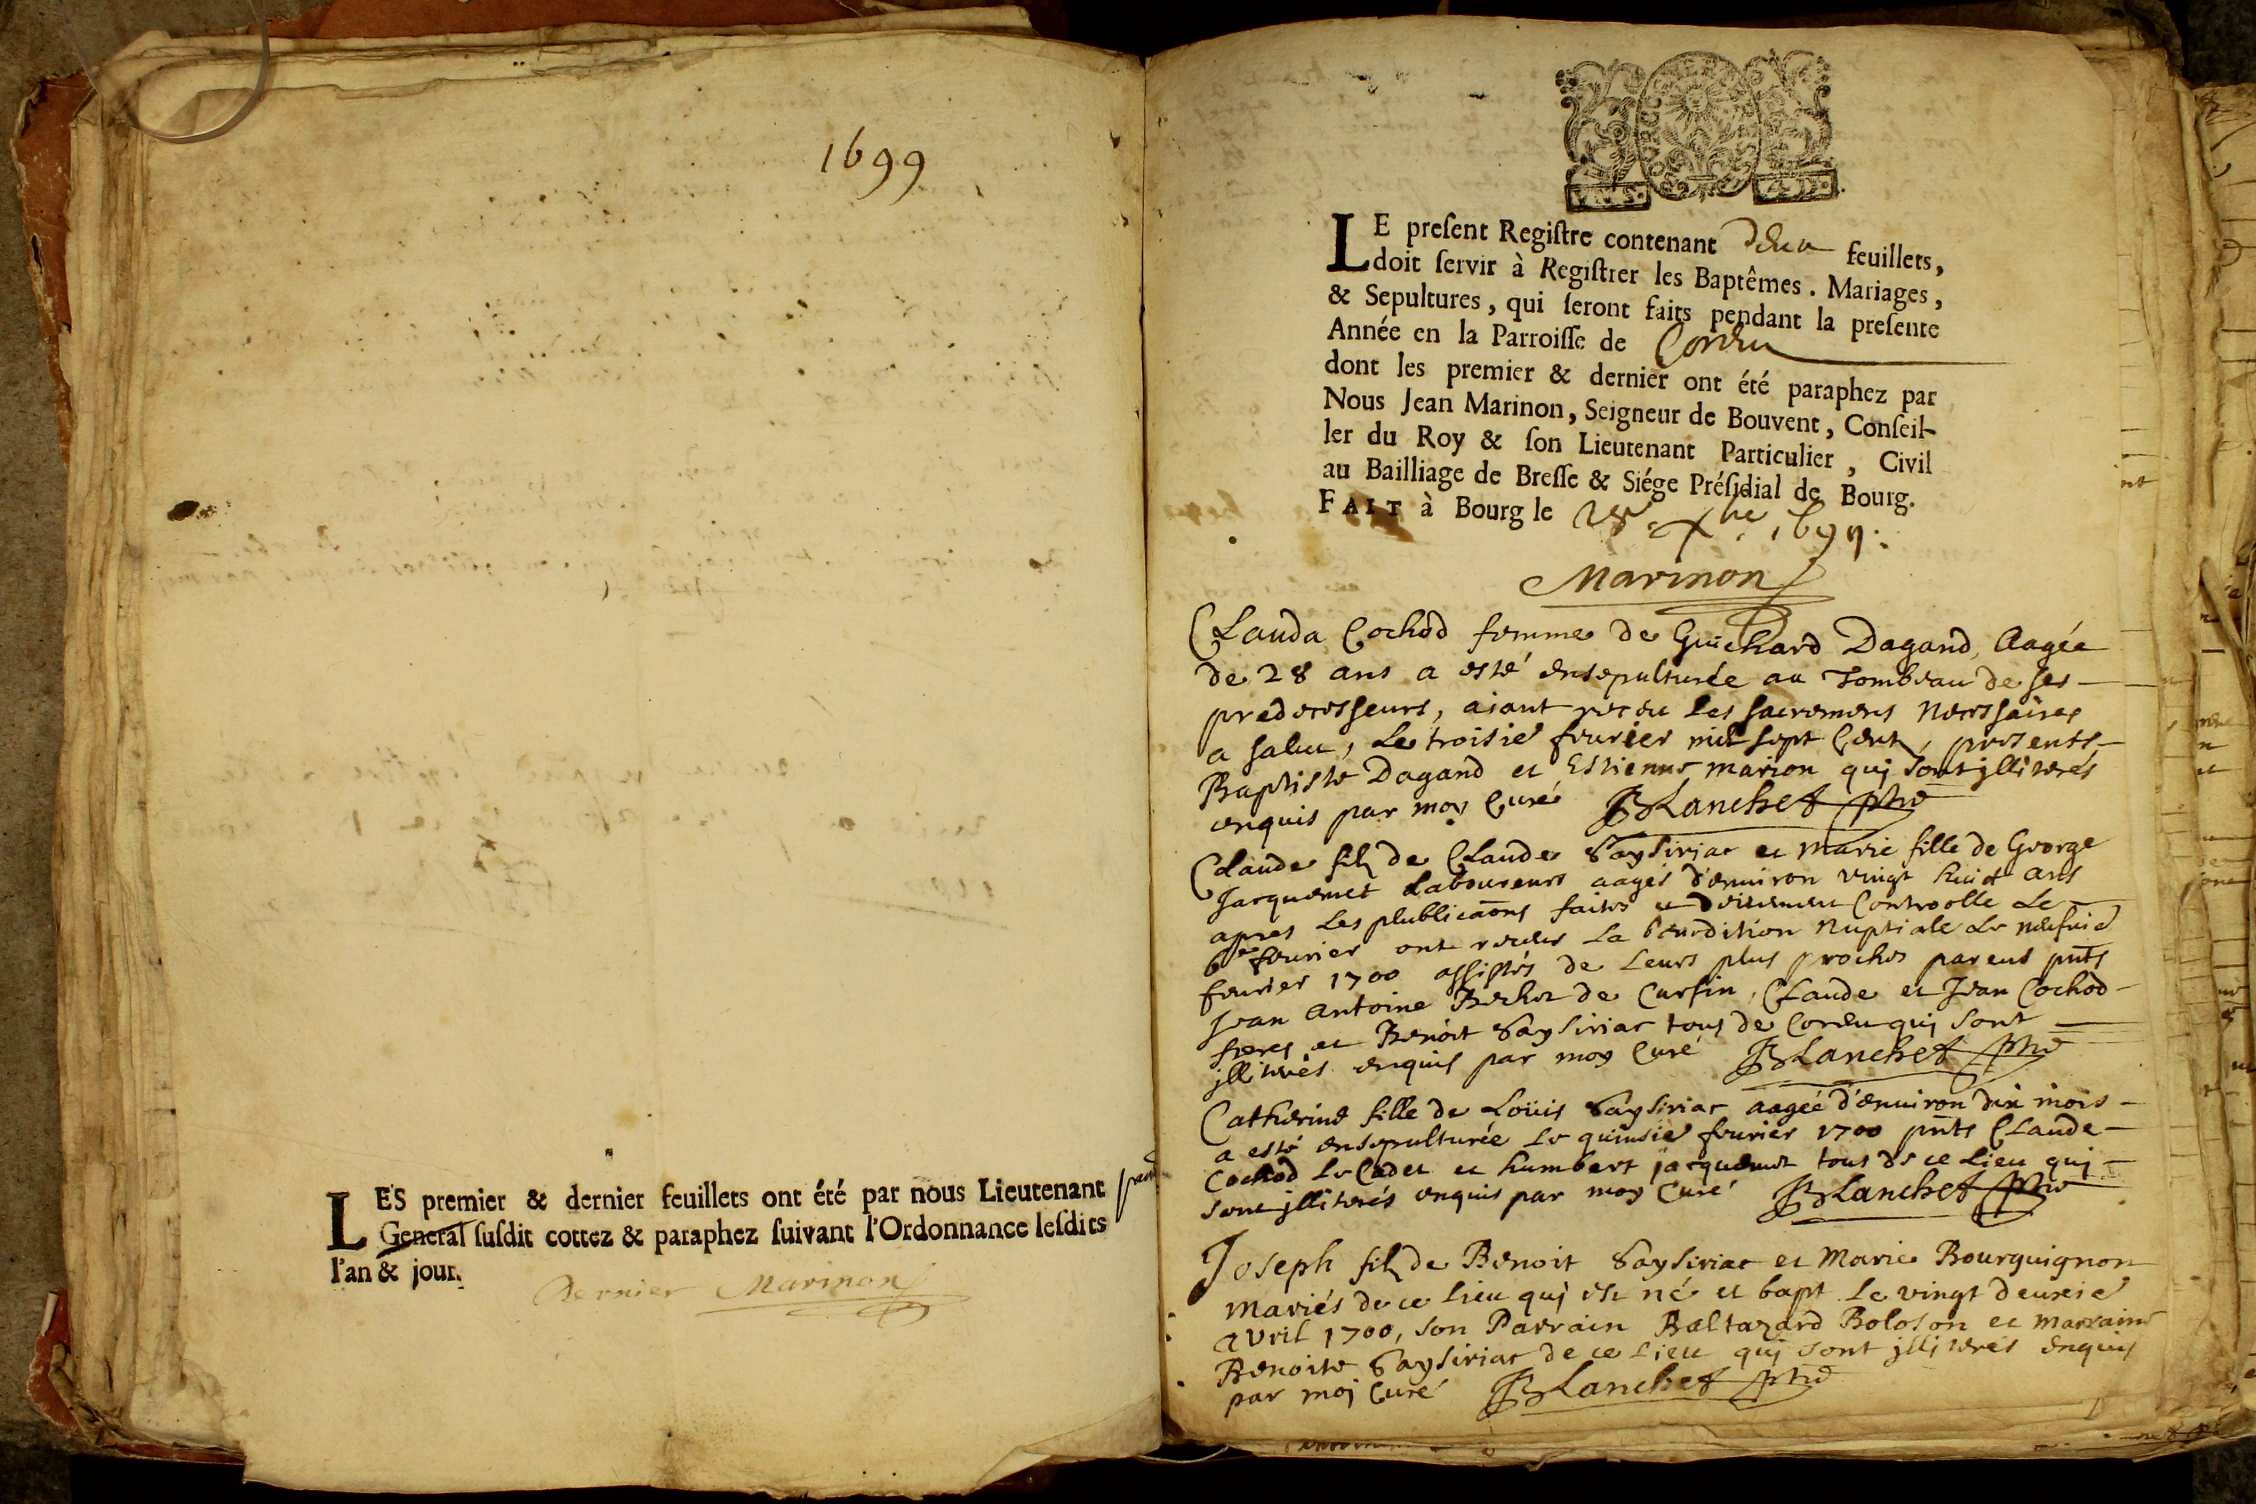 1699
LES premier & dernier feuillets ont été par nous Lieutenant
General susdit cottez & paraphez suivant l'Ordonnance lesdits
l'an & jour.
Dernier Marinon
LE present Registre contenant deux feuillets,
doit servir à Registrer les Baptêmes. Mariages,
& Sepultures, qui seront faits pendant la presente
Année en la Parroisse de Cordu
dont les premier & dernier ont été paraphez par
Nous Jean Marinon, Seigneur de Bouvent, Conseil-
ler du Roy & son Lieutenant Particulier, Civil
au Bailliage de Bresse & Siége Présidial de Bourg.
FAIT à Bourg le 1699.
Marinon
Clauda Cochod femme de Guichard Dagand, Aagée
de 28 ans a esté ensepulturée au Tombeau de ses
predecesseurs, aiant receu les sacremens necessaires
a salut, le troisie feurier mil sept Cent, presents
Baptiste Dagand et Estienne marion qui sont jlliterés
enquis par moy Curé BLanchet ptre
Claude filz de Claude Saysiriac et marie fille de George
Jacquemet Laboureurs aages d'enuiron vingt huict ans
apres les publicaons faites et deuement Controolle le
6e feurier ont receus la benedition Nuptiale le neufuie
feurier 1700 assistés de leurs plus proches parens pnts
Jean Antoine Bochet de Curfin, Claude et Jean Cochod
freres et Benoit Saysiriac tous de Cordu qui sont
jlliterés enquis par moy Curé BLanchet ptre
Catherine fille de Loüis Saysiriac aagée d'enuiron dix mois
a esté ensepulturée le quinsie feurier 1700 pnts Claude
Cochod le Cadet et humbert jacquemet tous de ce Lieu qui
sont jlliterés enquis par moy Curé BLanchet ptre
Joseph filz de Benoit Saysiriac et Marie Bourguignon
mariés de ce lieu qui est né et bapt le vingt deuxie
avril 1700, son Parrain Baltazard Boloson et marraine
Benoite Saysiriac de ce Lieu qui sont jlliterés enquis
par moj Curé BLanchet ptre